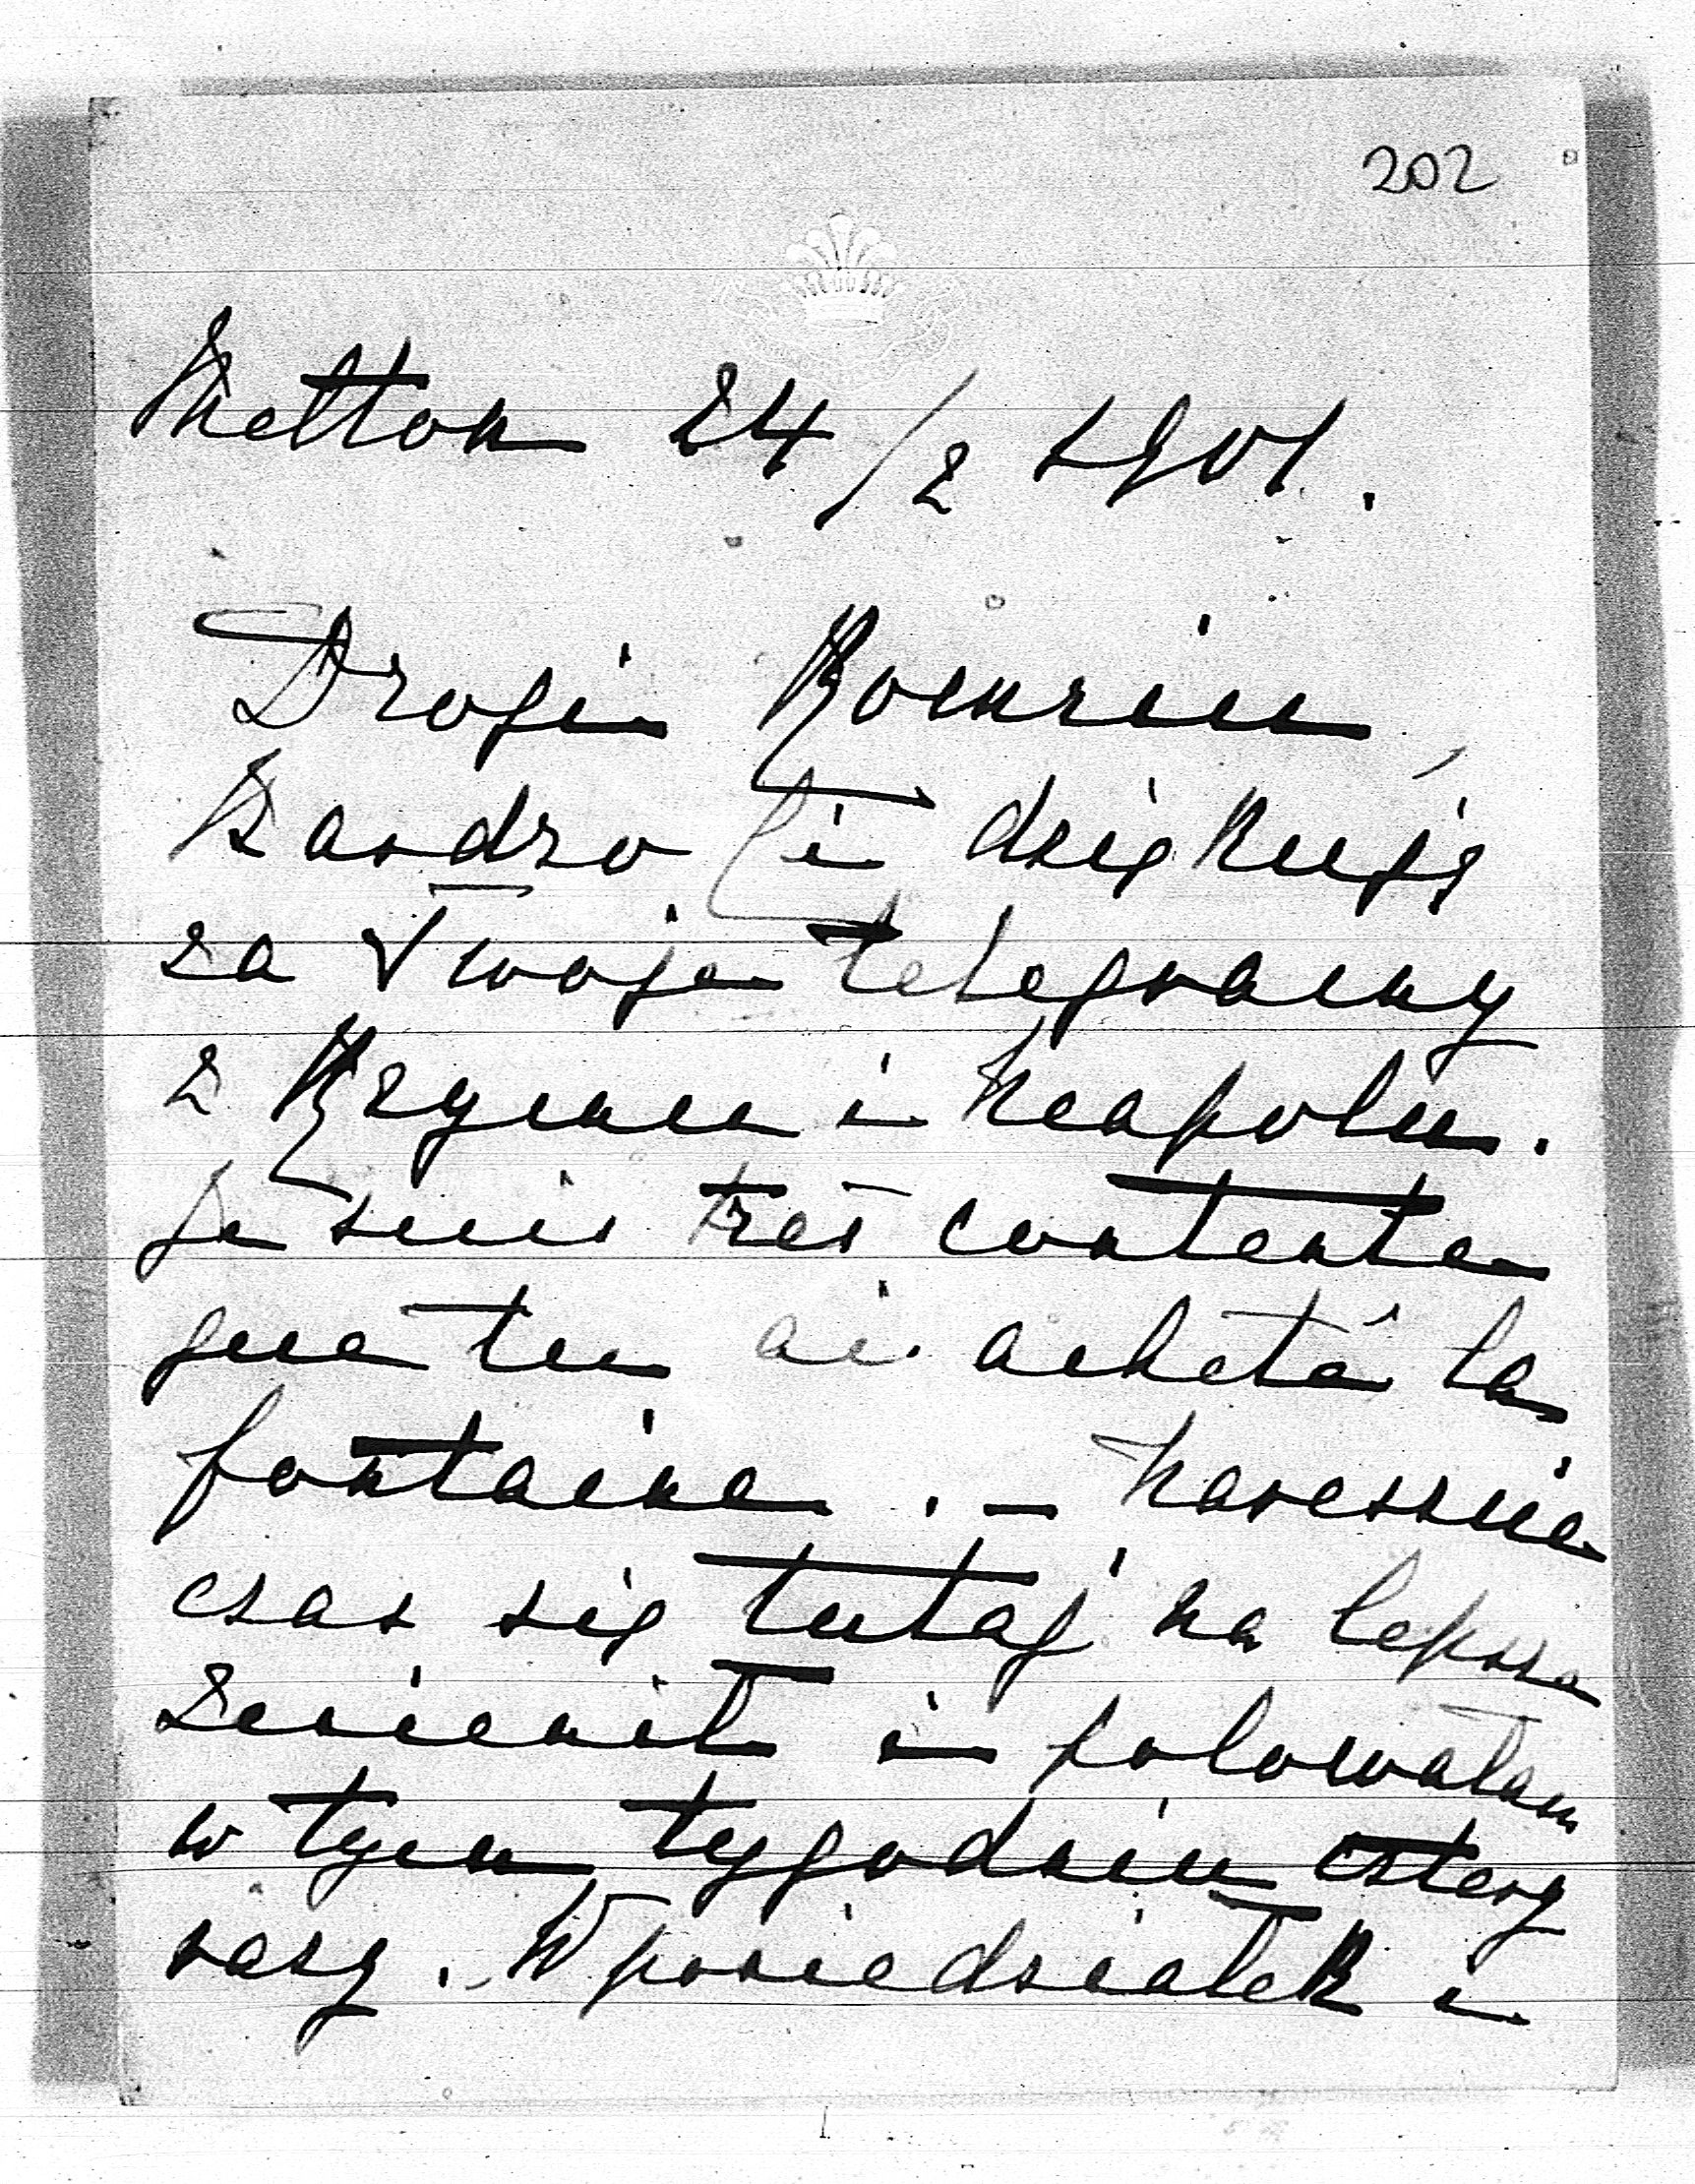 202
Melton 24/2 1901.
Drogi Romciu,
Bardzo Ci dziękuję
za Twoje telegramy
z Rzymu i Neapolu.
Je suis très contente
que tu ai acheté la
fontaine. – Nareszcie
czas się tutaj na lepsze
zmienił i polowałam
w tym tygodniu cztery
razy. W poniedziałek i